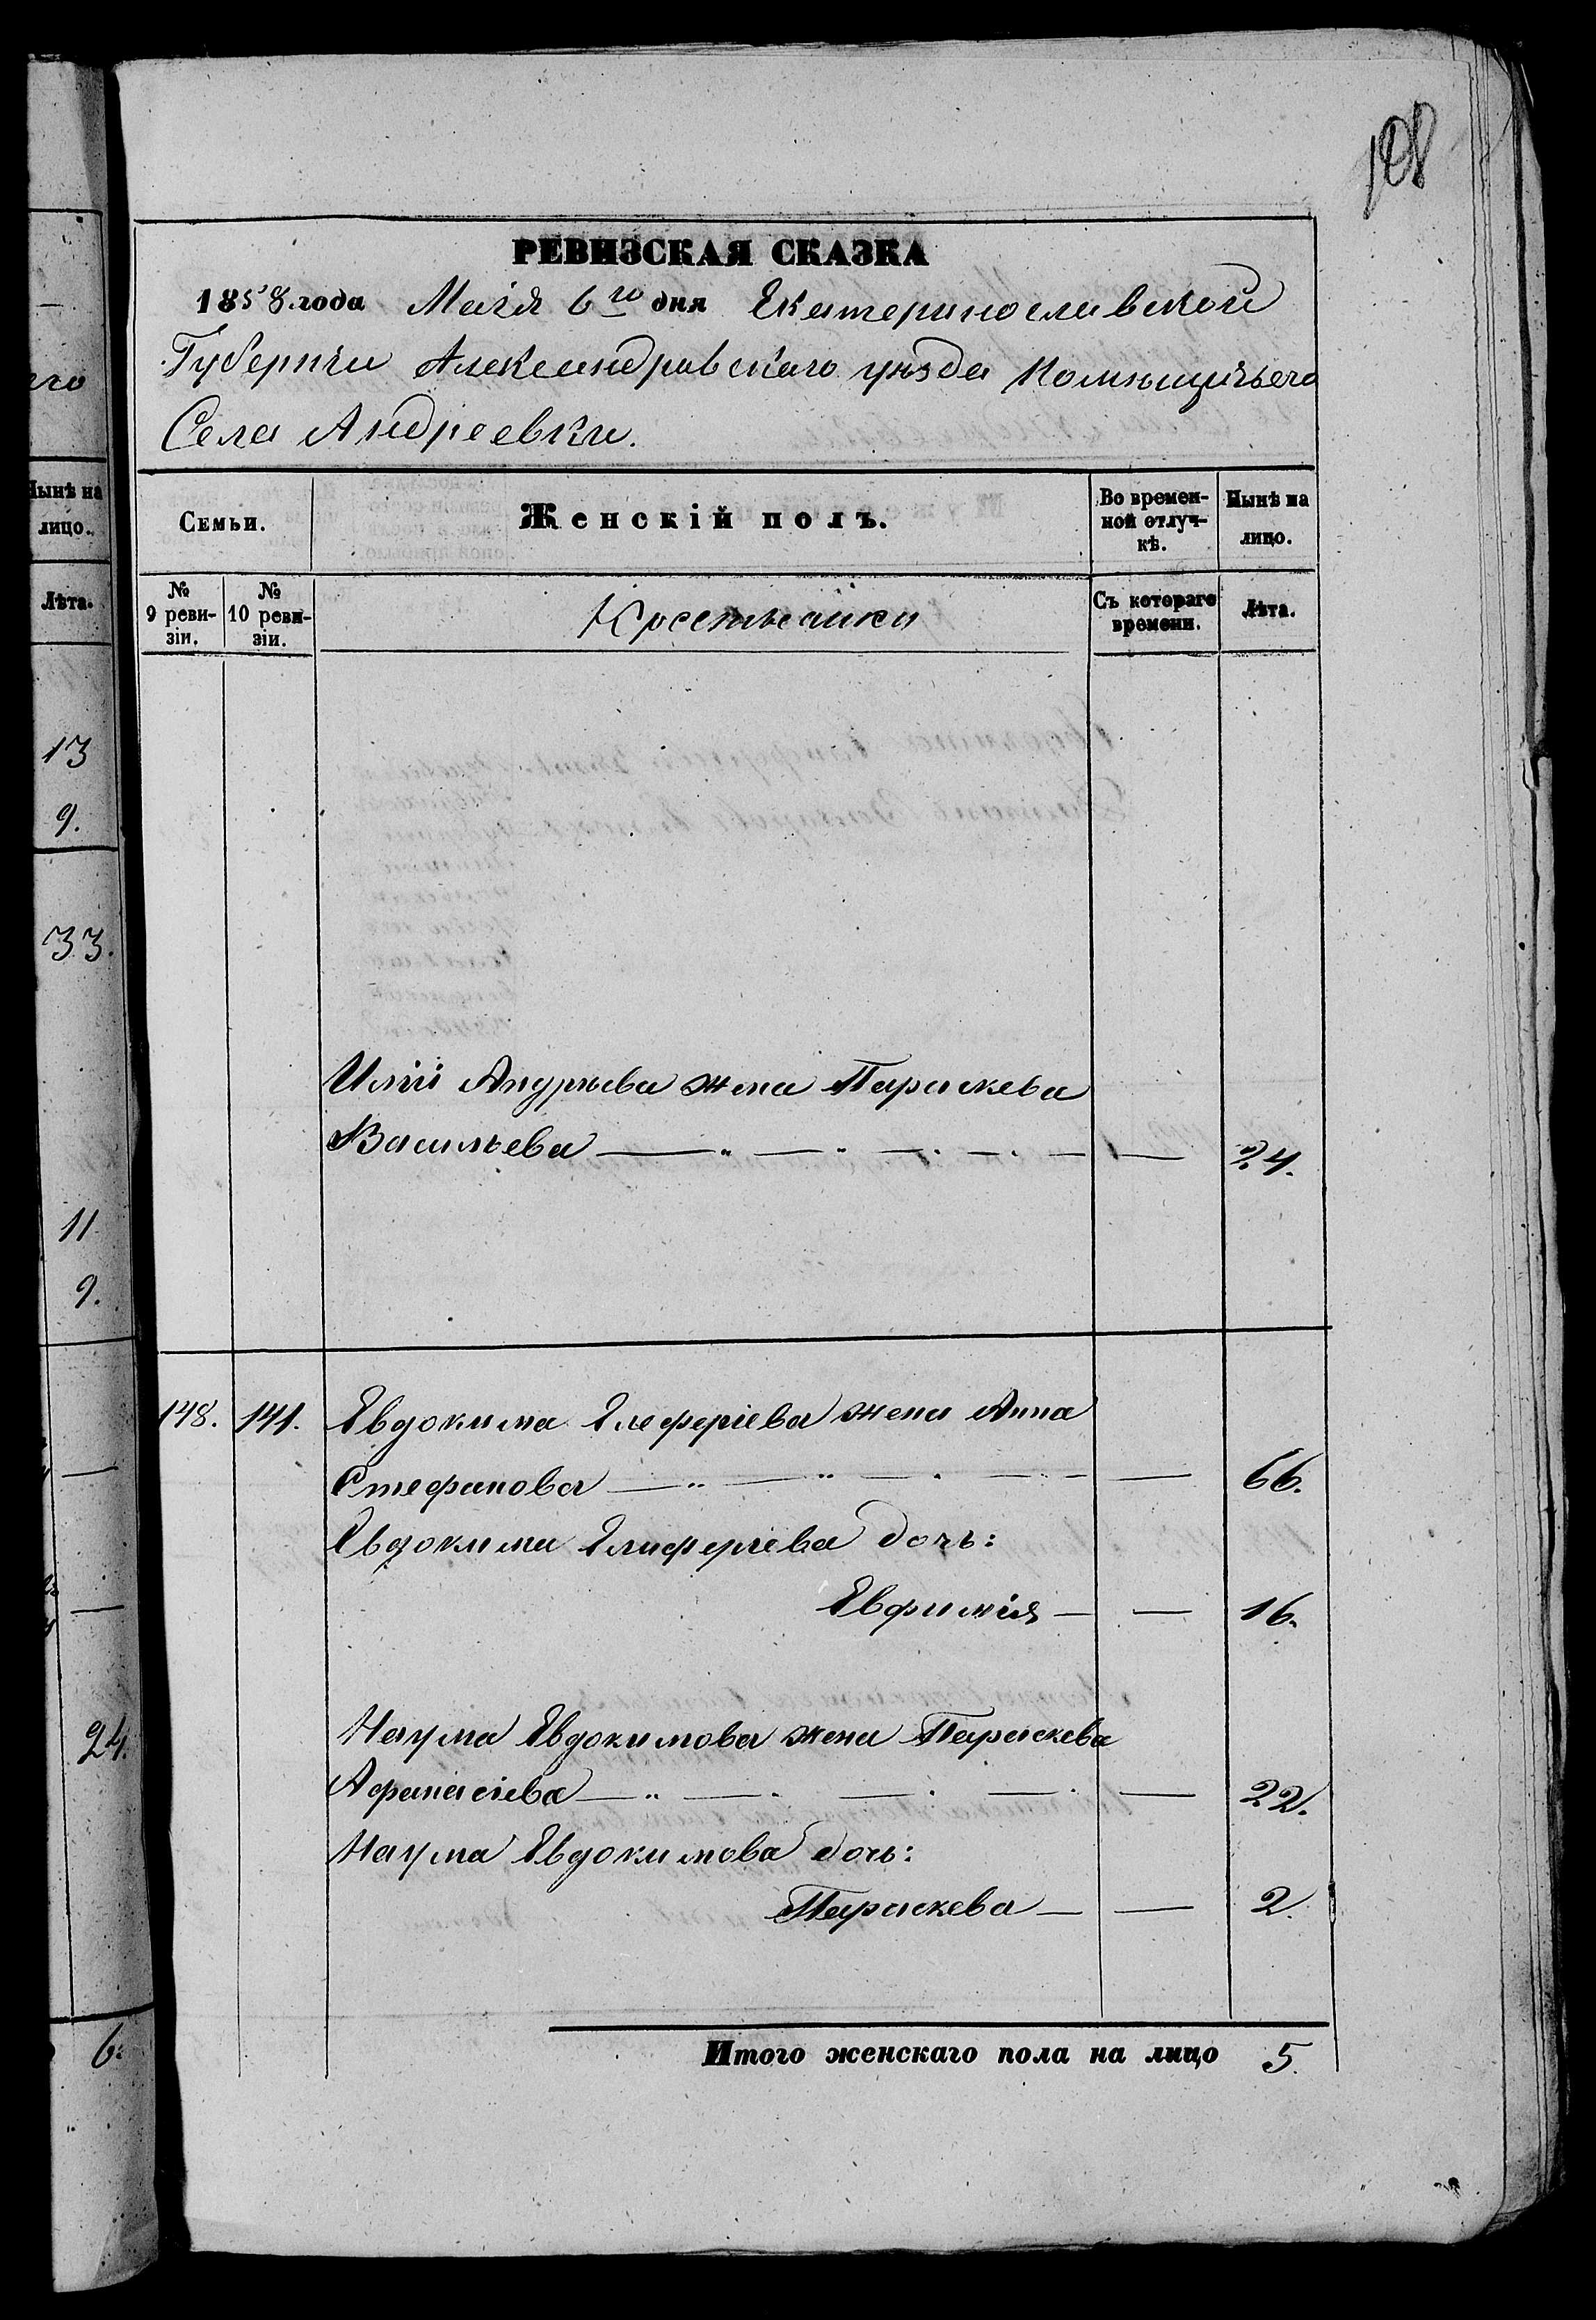 108
РЕВИЗСКАЯ СКАЗКА
1858 года Маія 6го дня Екатеринославской
Губерніи Александровскаго уѣзда Помѣщичьего
Села Андреевки.
Семьи.
Женскій полъ.
Во времен-
ной отлуч-
кѣ.
Нынѣ на
лицо.
№
9 реви-
зіи.
№
10 реви-
зіи.
Крестьянки
Съ котораго
времени.
Лѣта.
Иліи Андреева жена Параскева
Васильева — — — — — 24.
148. 141. Евдокима Елеферіева жена Анна
Стефанова — — — — — 66.
Евдокима Елиферіева дочь:
Евфимія — — 16.
Наума Евдокимова жена Параскева
Афанасіева — — — — — 22.
Наума Евдокимова дочь:
Параскева — — 2.
Итого женскаго пола на лицо 5.
Нынѣ на
лицо.
Лѣта.
13
9.
33.
11
9.
24.
6.